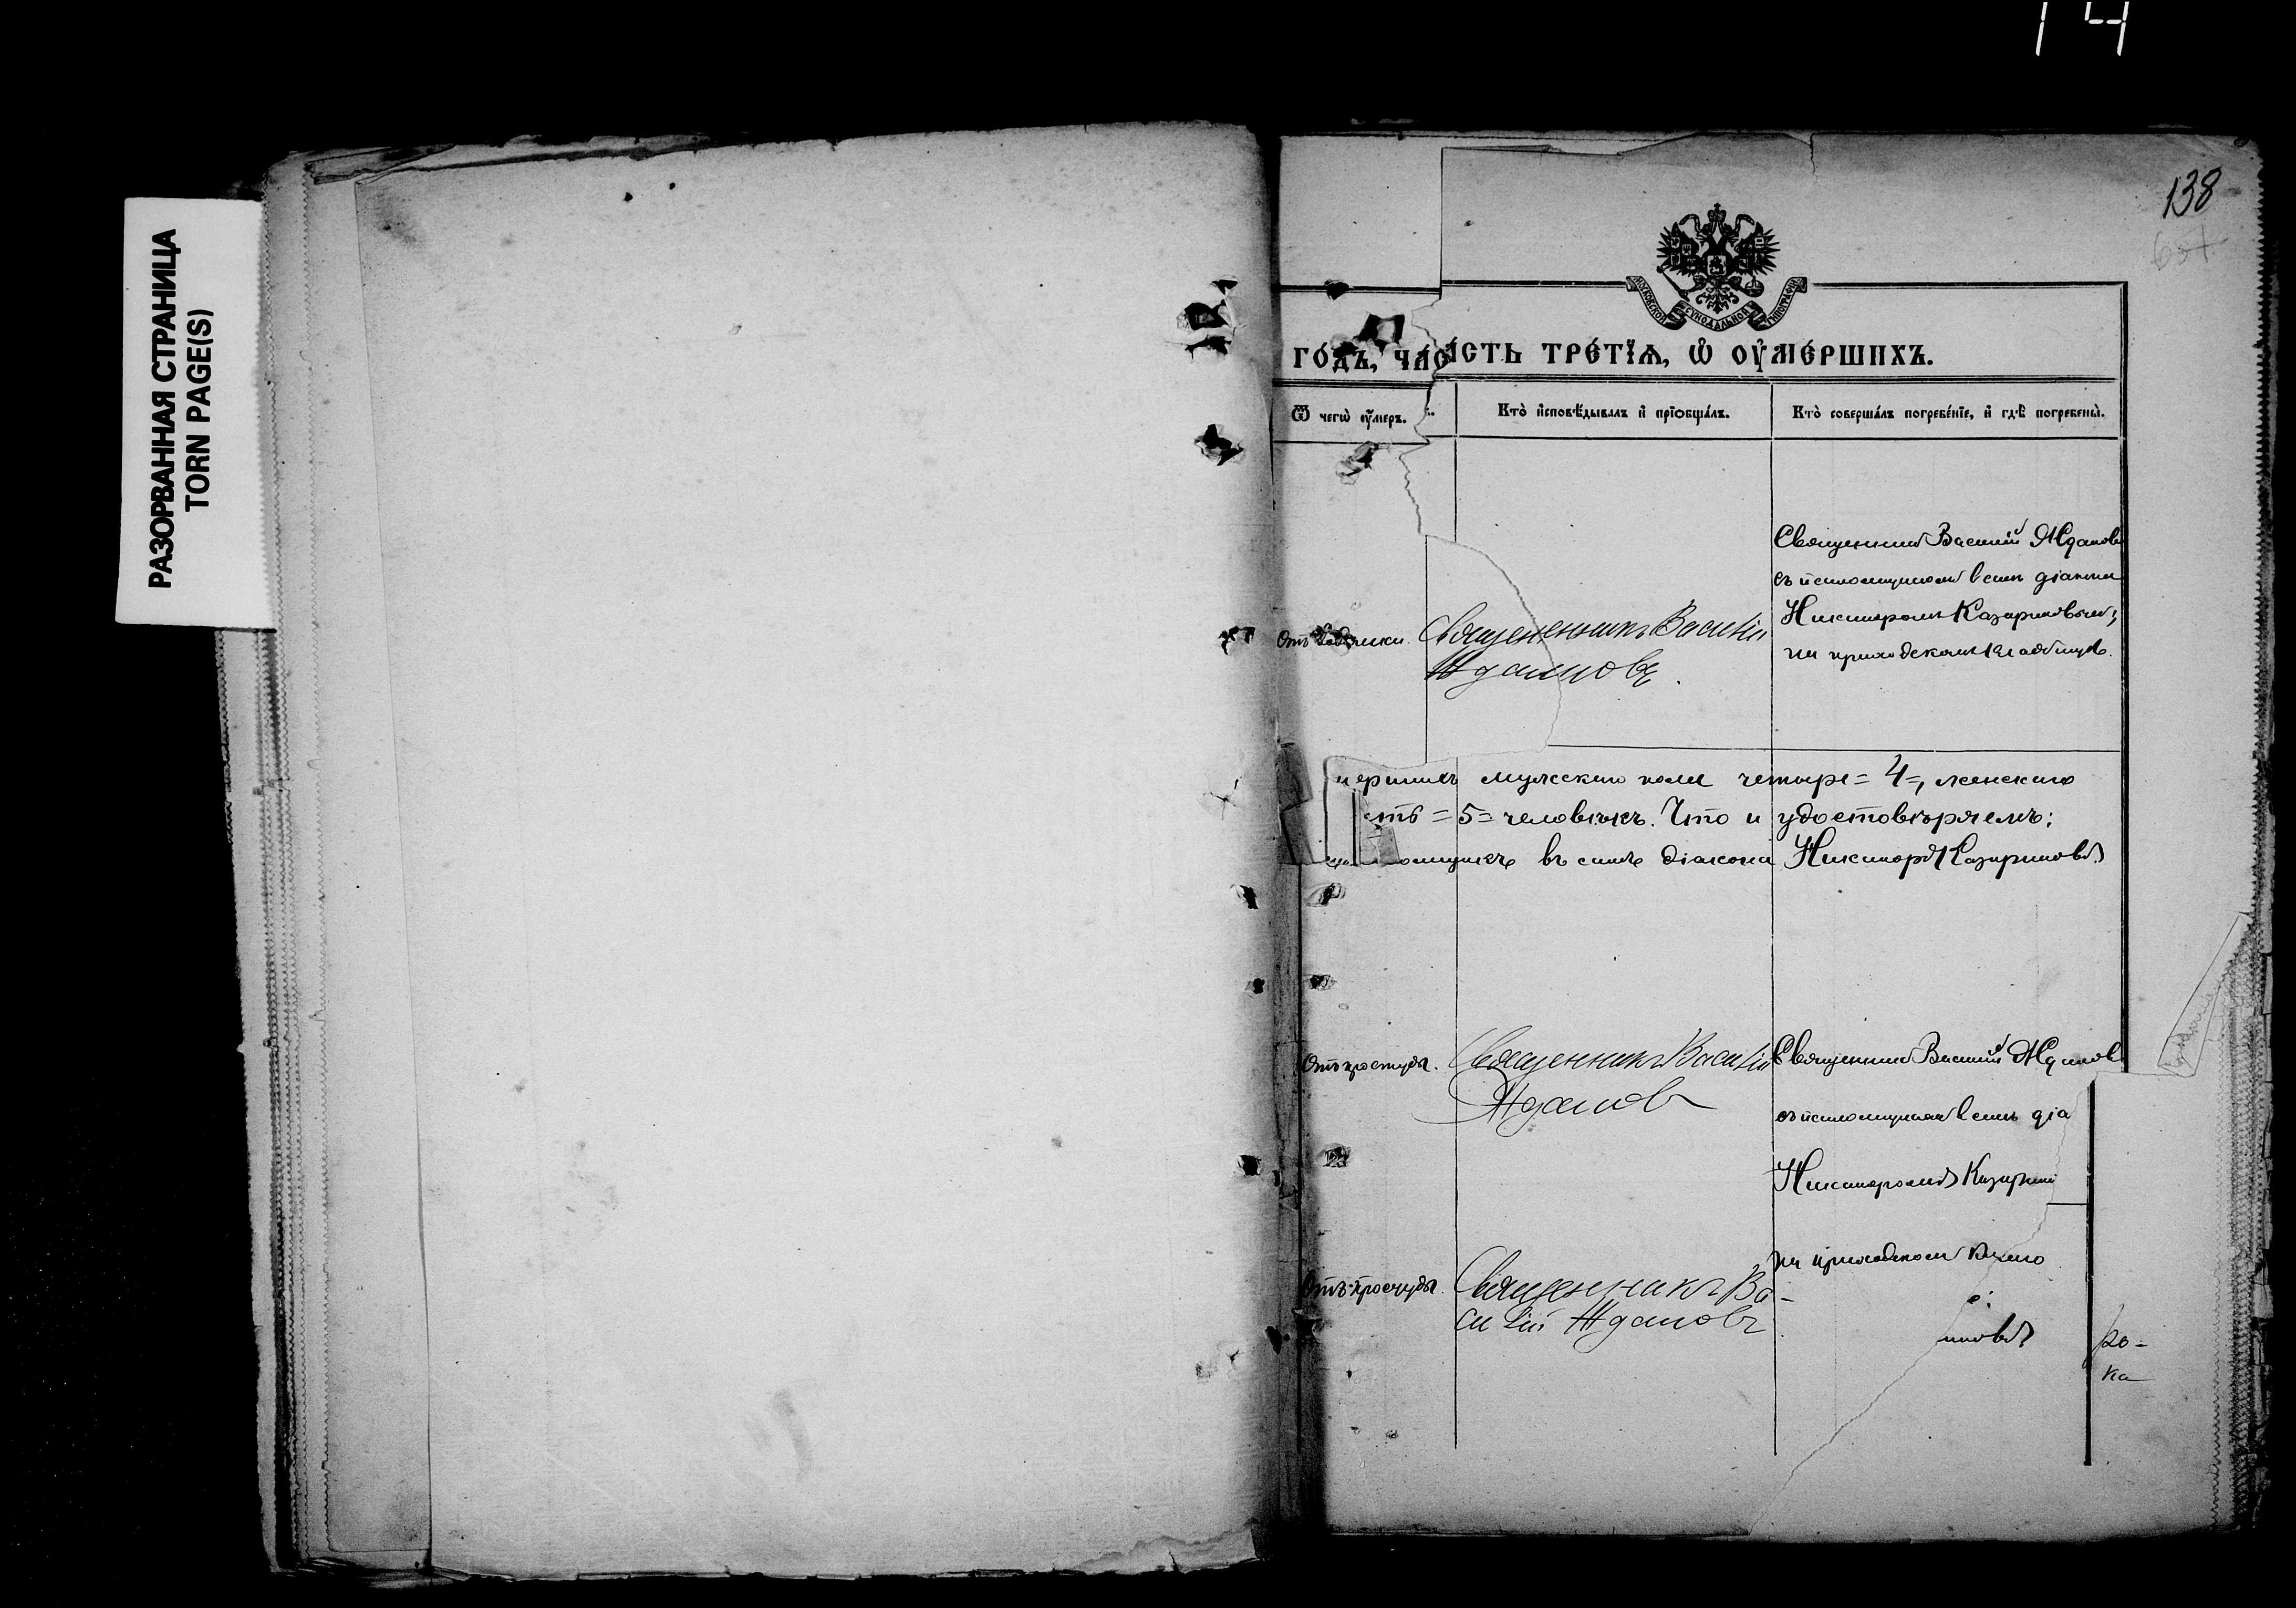 14
РАЗОРВАННАЯ СТРАНИЦА
TORN PAGE(S)
138
МОСКОВСКОЙ СѴНОДАЛЬНОЙ ТИПОГРАФІИ
ГО́ДЪ, ЧА́СТЬ ТРЕ́ТЇѦ, Ѡ҆ ОУ҆МЕ́РШИХЪ.
Ѿ чегѡ̀ оу҆́меръ.
Кто̀ и҆сповѣ́дывалъ и҆ прїобща́лъ.
Кто̀ соверша́лъ погребе́нїе, и҆ гдѣ̀ погребены̀.
Священникъ Василій Ждановъ
съ псаломщикомъ въ санѣ діакона
Никаноромъ Казариновымъ,
на приходскомъ кладбищѣ.
Отъ
Священникъ Василій
Ждановъ.
мершихъ мужскаго пола четыре =4=, женскаго
=5= человѣкъ. Что и удостовѣряемъ:
омщикъ въ санѣ діакона Никаноръ Казариновъ
Отъ простуды.
Священникъ Василій
Ждановъ
Священникъ Василій Ждановъ
съ псаломщикомъ въ санѣ діа
Никаноромъ Казарин
на приходском
Отъ простуды.
Священникъ Ва-
силій Ждановъ
иновъ
ро-
ка